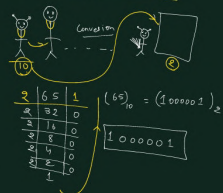 Conversion
10
2
2 | 65 | 1
2 | 32 | 0
2 | 16 | 0
2 | 8 | 0
2 | 4 | 0
2 | 2 | 0
1
(65)10 = (1000001)2
1000001